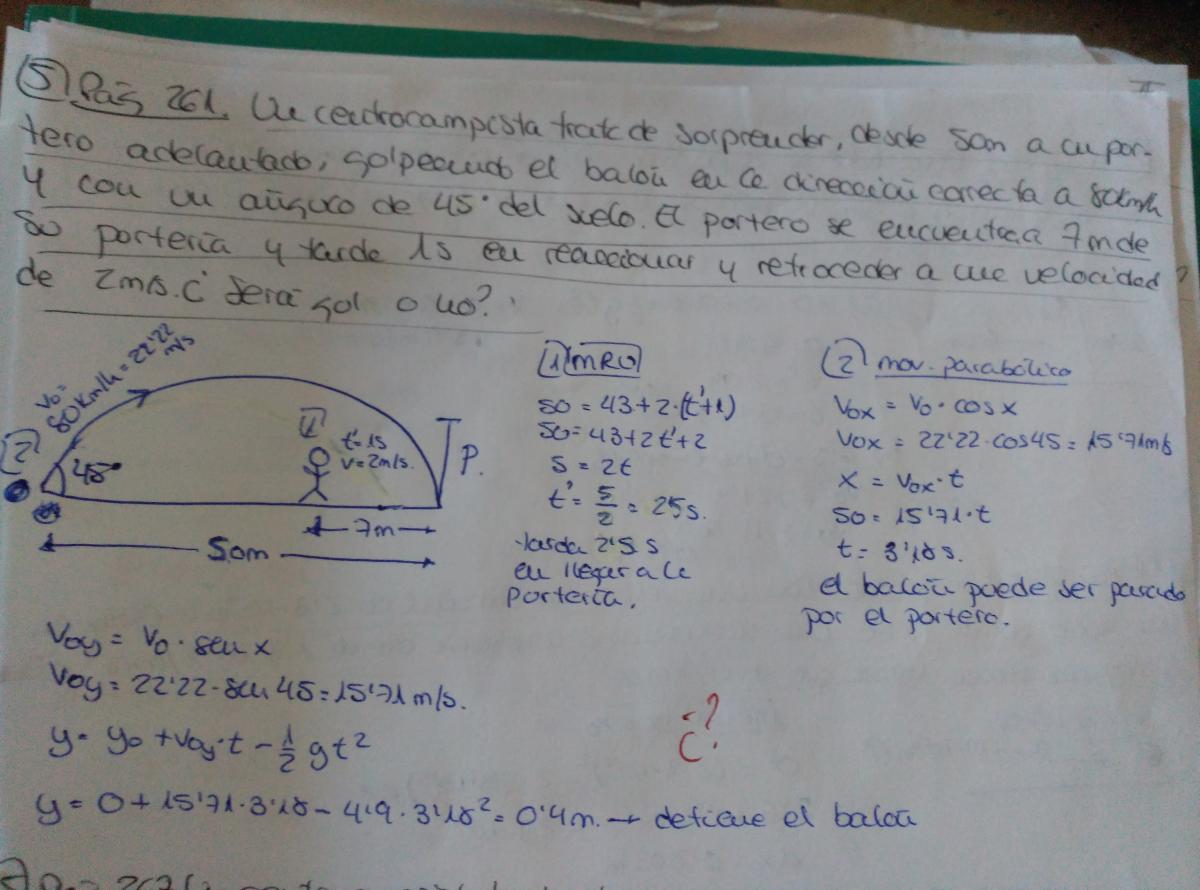 ⑤ Pág 261. Un centrocampista trata de sorprender, desde 50m a un por-
tero adelantado, golpeando el balón en la dirección correcta a 80km/h
y con un ángulo de 45° del suelo. El portero se encuentra a 7m de
su portería y tarda 1s en reaccionar y retroceder a una velocidad
de 2m/s. ¿Será gol o no?
v0=
80km/h = 22'22 m/s
2
45°
1
t'=1s
v=2m/s.
P.
7m
50m
1 MRU
50 = 43+2·(t'+1)
50 = 43+2t'+2
5 = 2t
t' = 5/2 = 25s.
tarda 2'5 s
en llegar a la
portería.
② mov. parabólico
Vox = Vo · cosx
Vox = 22'22·cos45 = 15'71m/s
x = Vox·t
50 = 15'71·t
t = 3'18 s.
el balón puede ser parado
por el portero.
Voy = Vo · sen x
Voy = 22'22·sen 45 = 15'71 m/s.
y = yo + Voy·t - 1/2 gt²
y = 0 + 15'71·3'18 - 4'9·3'18² = 0'4m. → detiene el balón
¿?